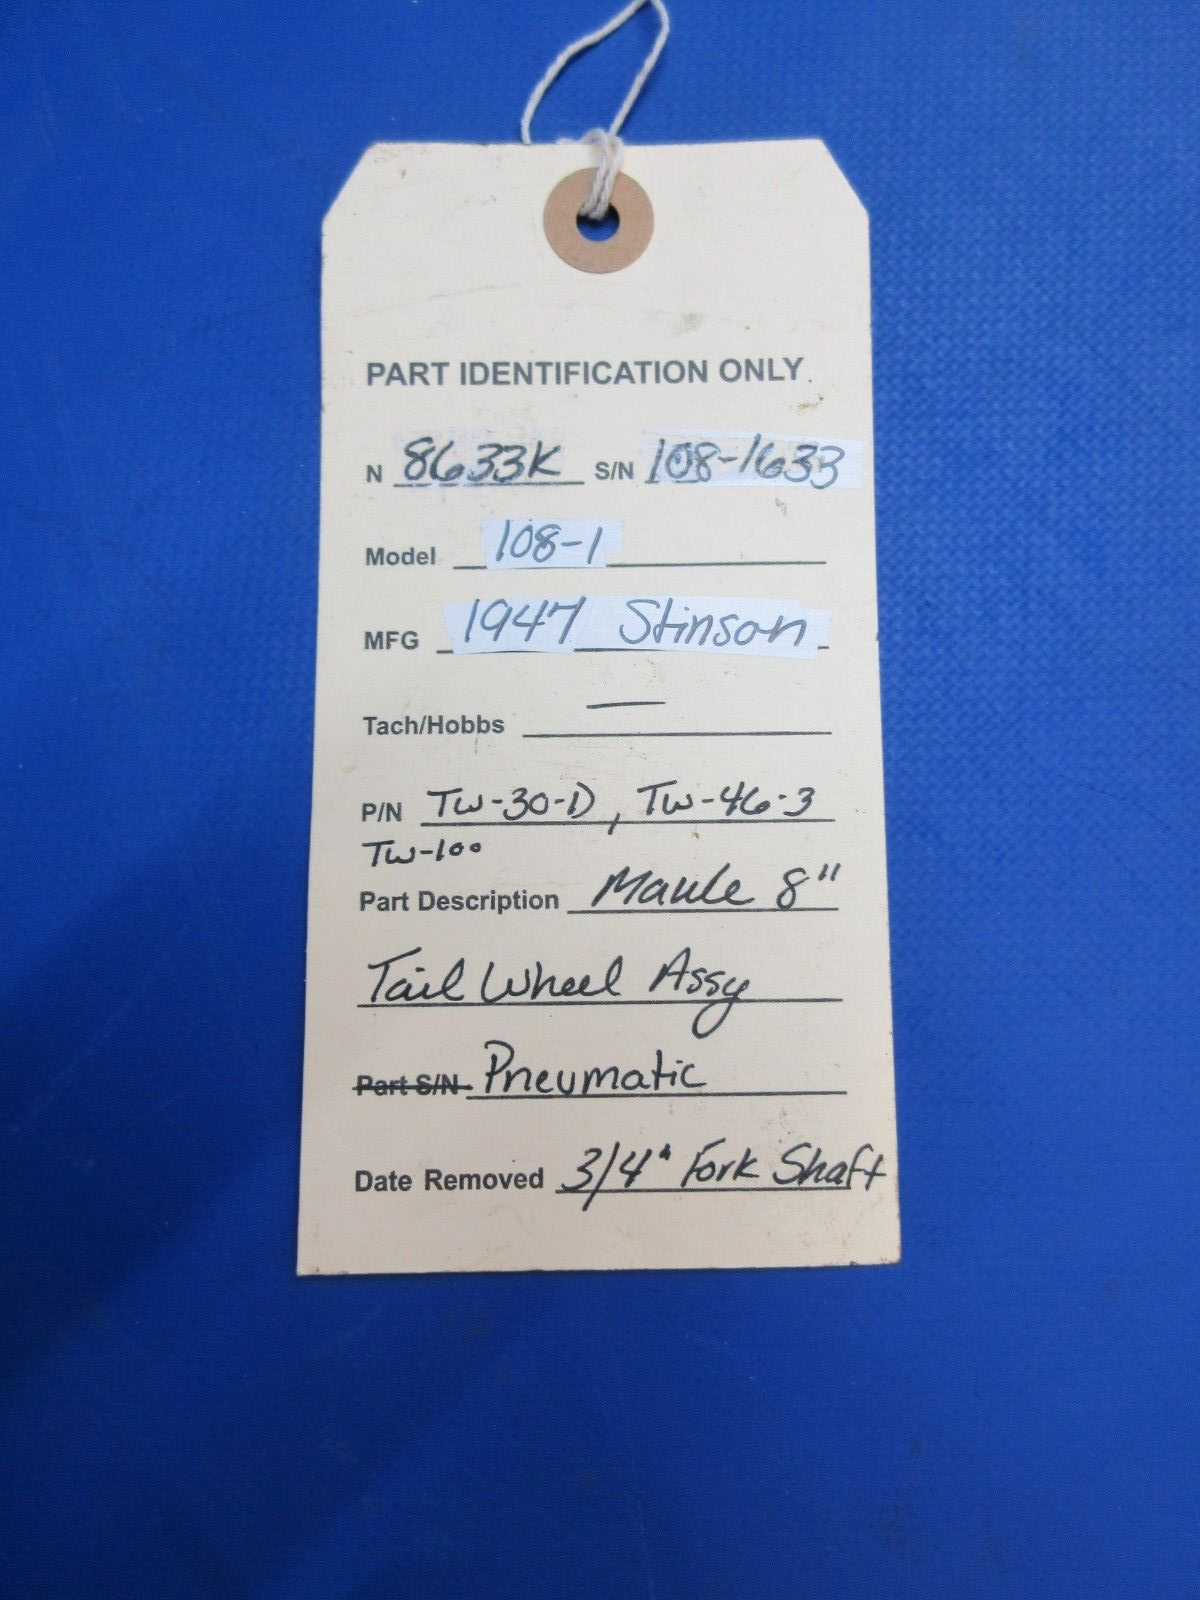 PART IDENTIFICATION ONLY
N 8633K S/N 108-1633
Model 108-1
MFG 1947 Stinson
Tach/Hobbs —
P/N TW-30-D, TW-46-3
TW-100
Part Description Maule 8"
Tail Wheel Assy
Part S/N Pneumatic
Date Removed 3/4" Fork Shaft